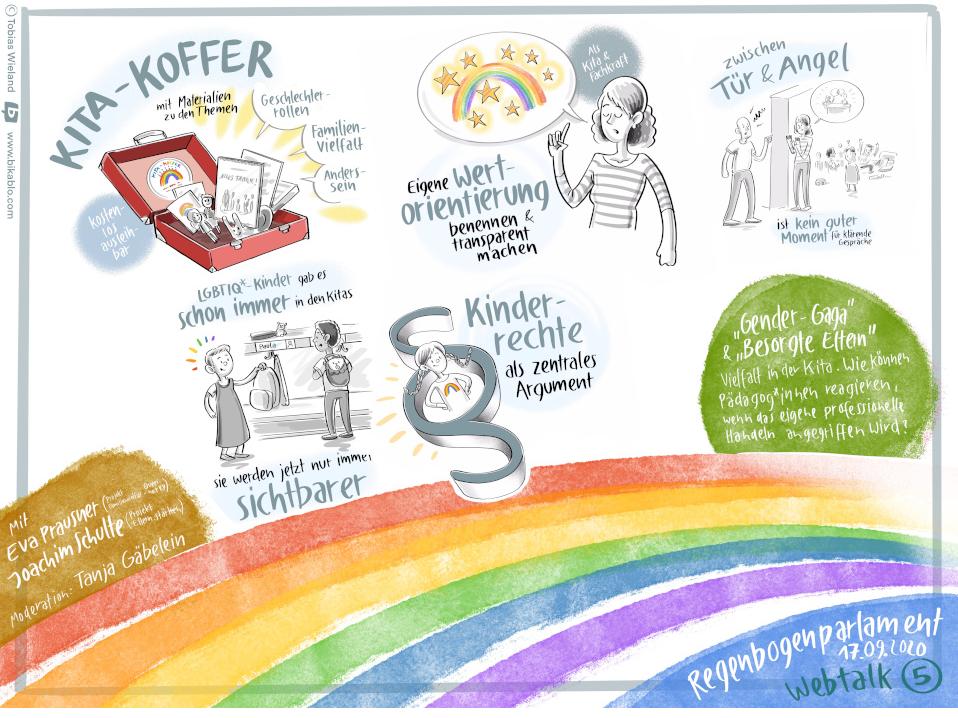 © Tobias Wieland
www.bikablo.com
KITA-KOFFER
mit Materialien
zu den Themen
Geschlechter-
rollen
Familien-
vielfalt
Anders-
sein
KITA-KOFFER
kosten-
los
ausleih-
bar
Als
Kita &
Fachkraft
Eigene Wert-
orientierung
benennen &
transparent
machen
zwischen
Tür & Angel
ist kein guter
Moment für klärende
Gespräche
LGBTIQ*-Kinder gab es
schon immer in den Kitas
Paula
sie werden jetzt nur immer
sichtbarer
Kinder-
rechte
als zentrales
Argument
"Gender-Gaga"
& „Besorgte Eltern"
Vielfalt in der Kita. Wie können
Pädagog*innen reagieren,
wenn das eigene professionelle
Handeln angegriffen wird?
Mit
Eva Prausner (Projekt
Joachim Schulte (Projekt
Eltern stärken)
Moderation: Tanja Gäbelein
Regenbogenparlament
17.09.2020
Webtalk 5